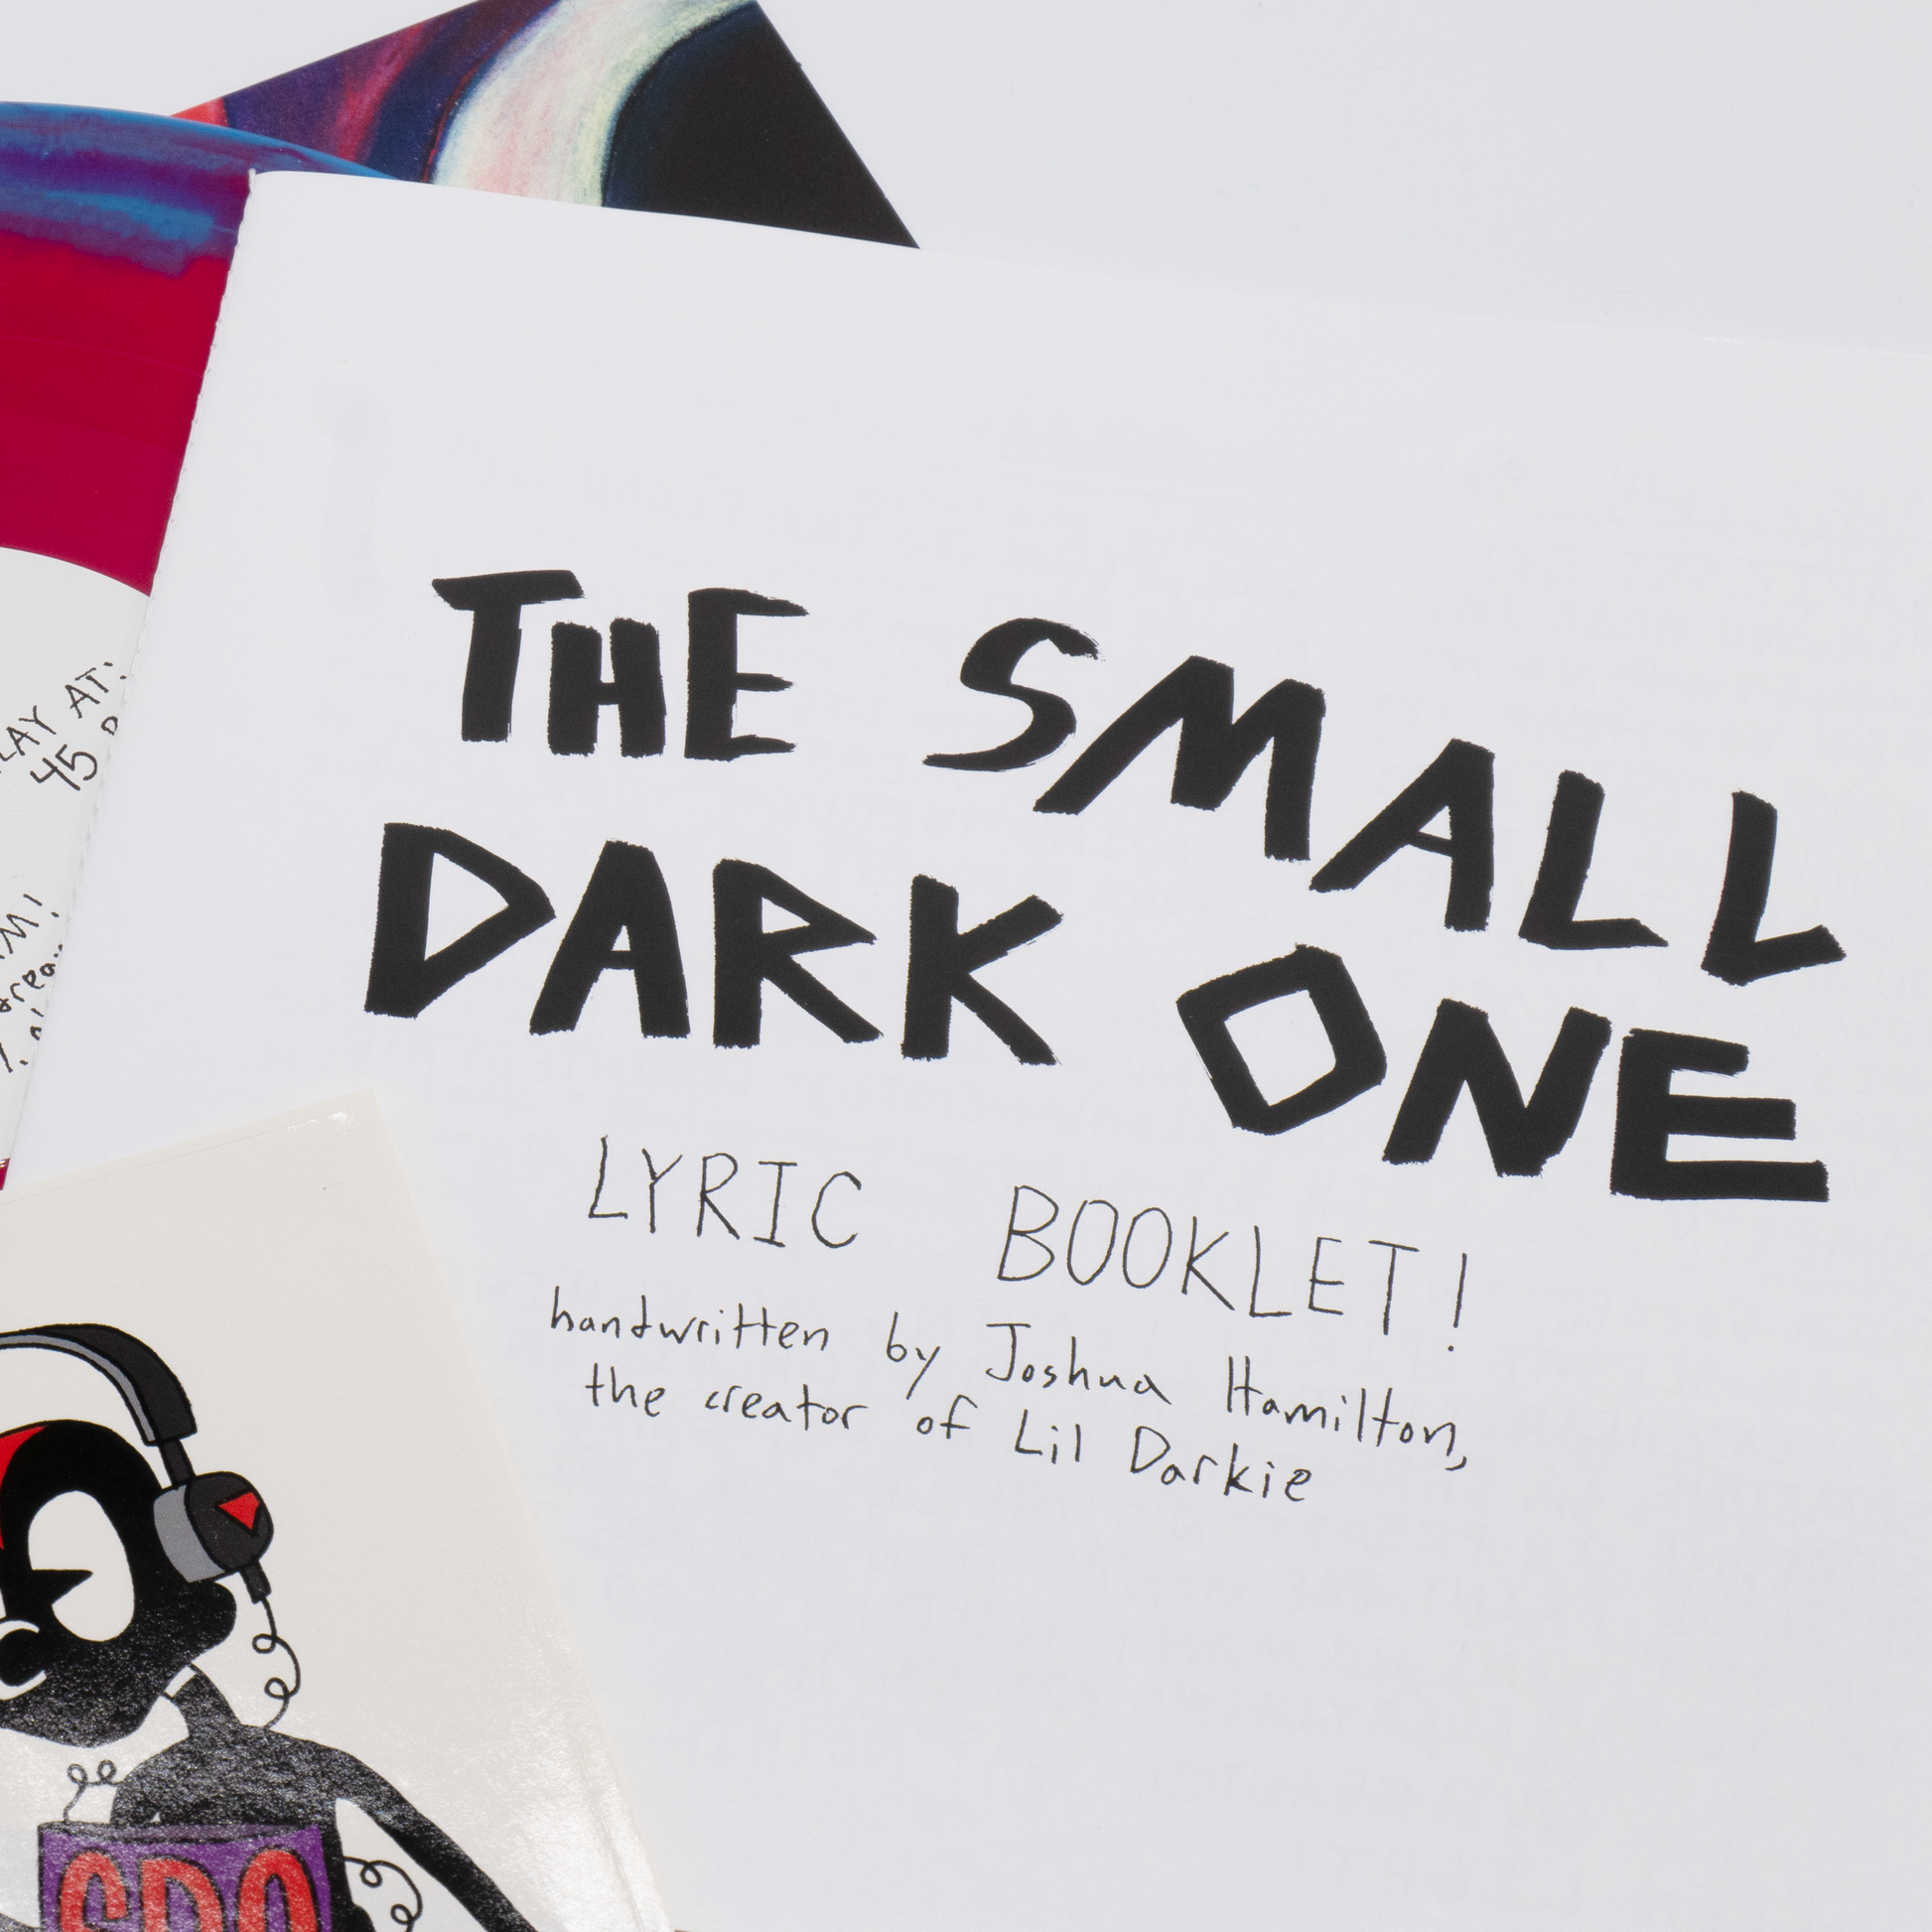 THE SMALL
DARK ONE
LYRIC BOOKLET!
handwritten by Joshua Hamilton,
the creator of Lil Darkie
AT:
45